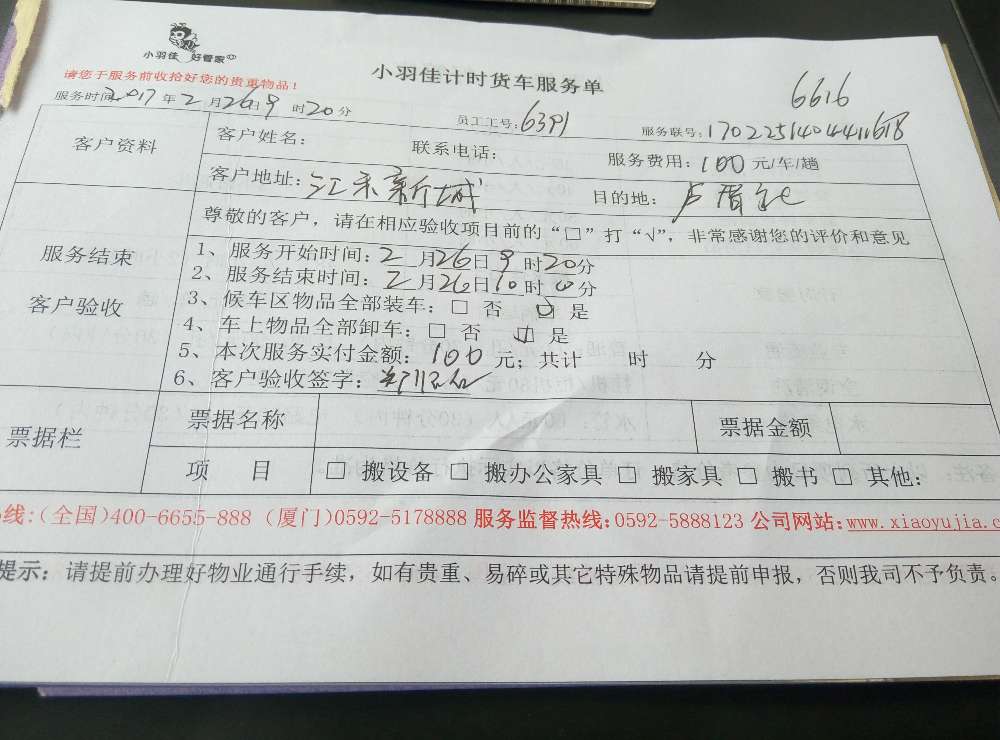 小羽佳 好管家
请您于服务前收拾好您的贵重物品！
小羽佳计时货车服务单
6616
服务时间2017年2月26日9时20分
员工工号：6391
服务联号：
客户资料
客户姓名：
联系电话：
服务费用：100元/车/趟
客户地址：江禾新城
目的地：卢厝
服务结束
客户验收
尊敬的客户，请在相应验收项目前的“□”打“√”，非常感谢您的评价和意见
1、服务开始时间：2月26日9时20分
2、服务结束时间：2月26日10时10分
3、候车区物品全部装车：□ 否 ☑ 是
4、车上物品全部卸车：□ 否 ☑ 是
5、本次服务实付金额：100元；共计 时 分
6、客户验收签字：
票据栏
票据名称
票据金额
项 目
□ 搬设备 □ 搬办公家具 □ 搬家具 □ 搬书 □ 其他：
线：(全国)400-6655-888 (厦门)0592-5178888 服务监督热线：0592-5888123 公司网站：www.xiaoyujia.c
提示：请提前办理好物业通行手续，如有贵重、易碎或其它特殊物品请提前申报，否则我司不予负责。